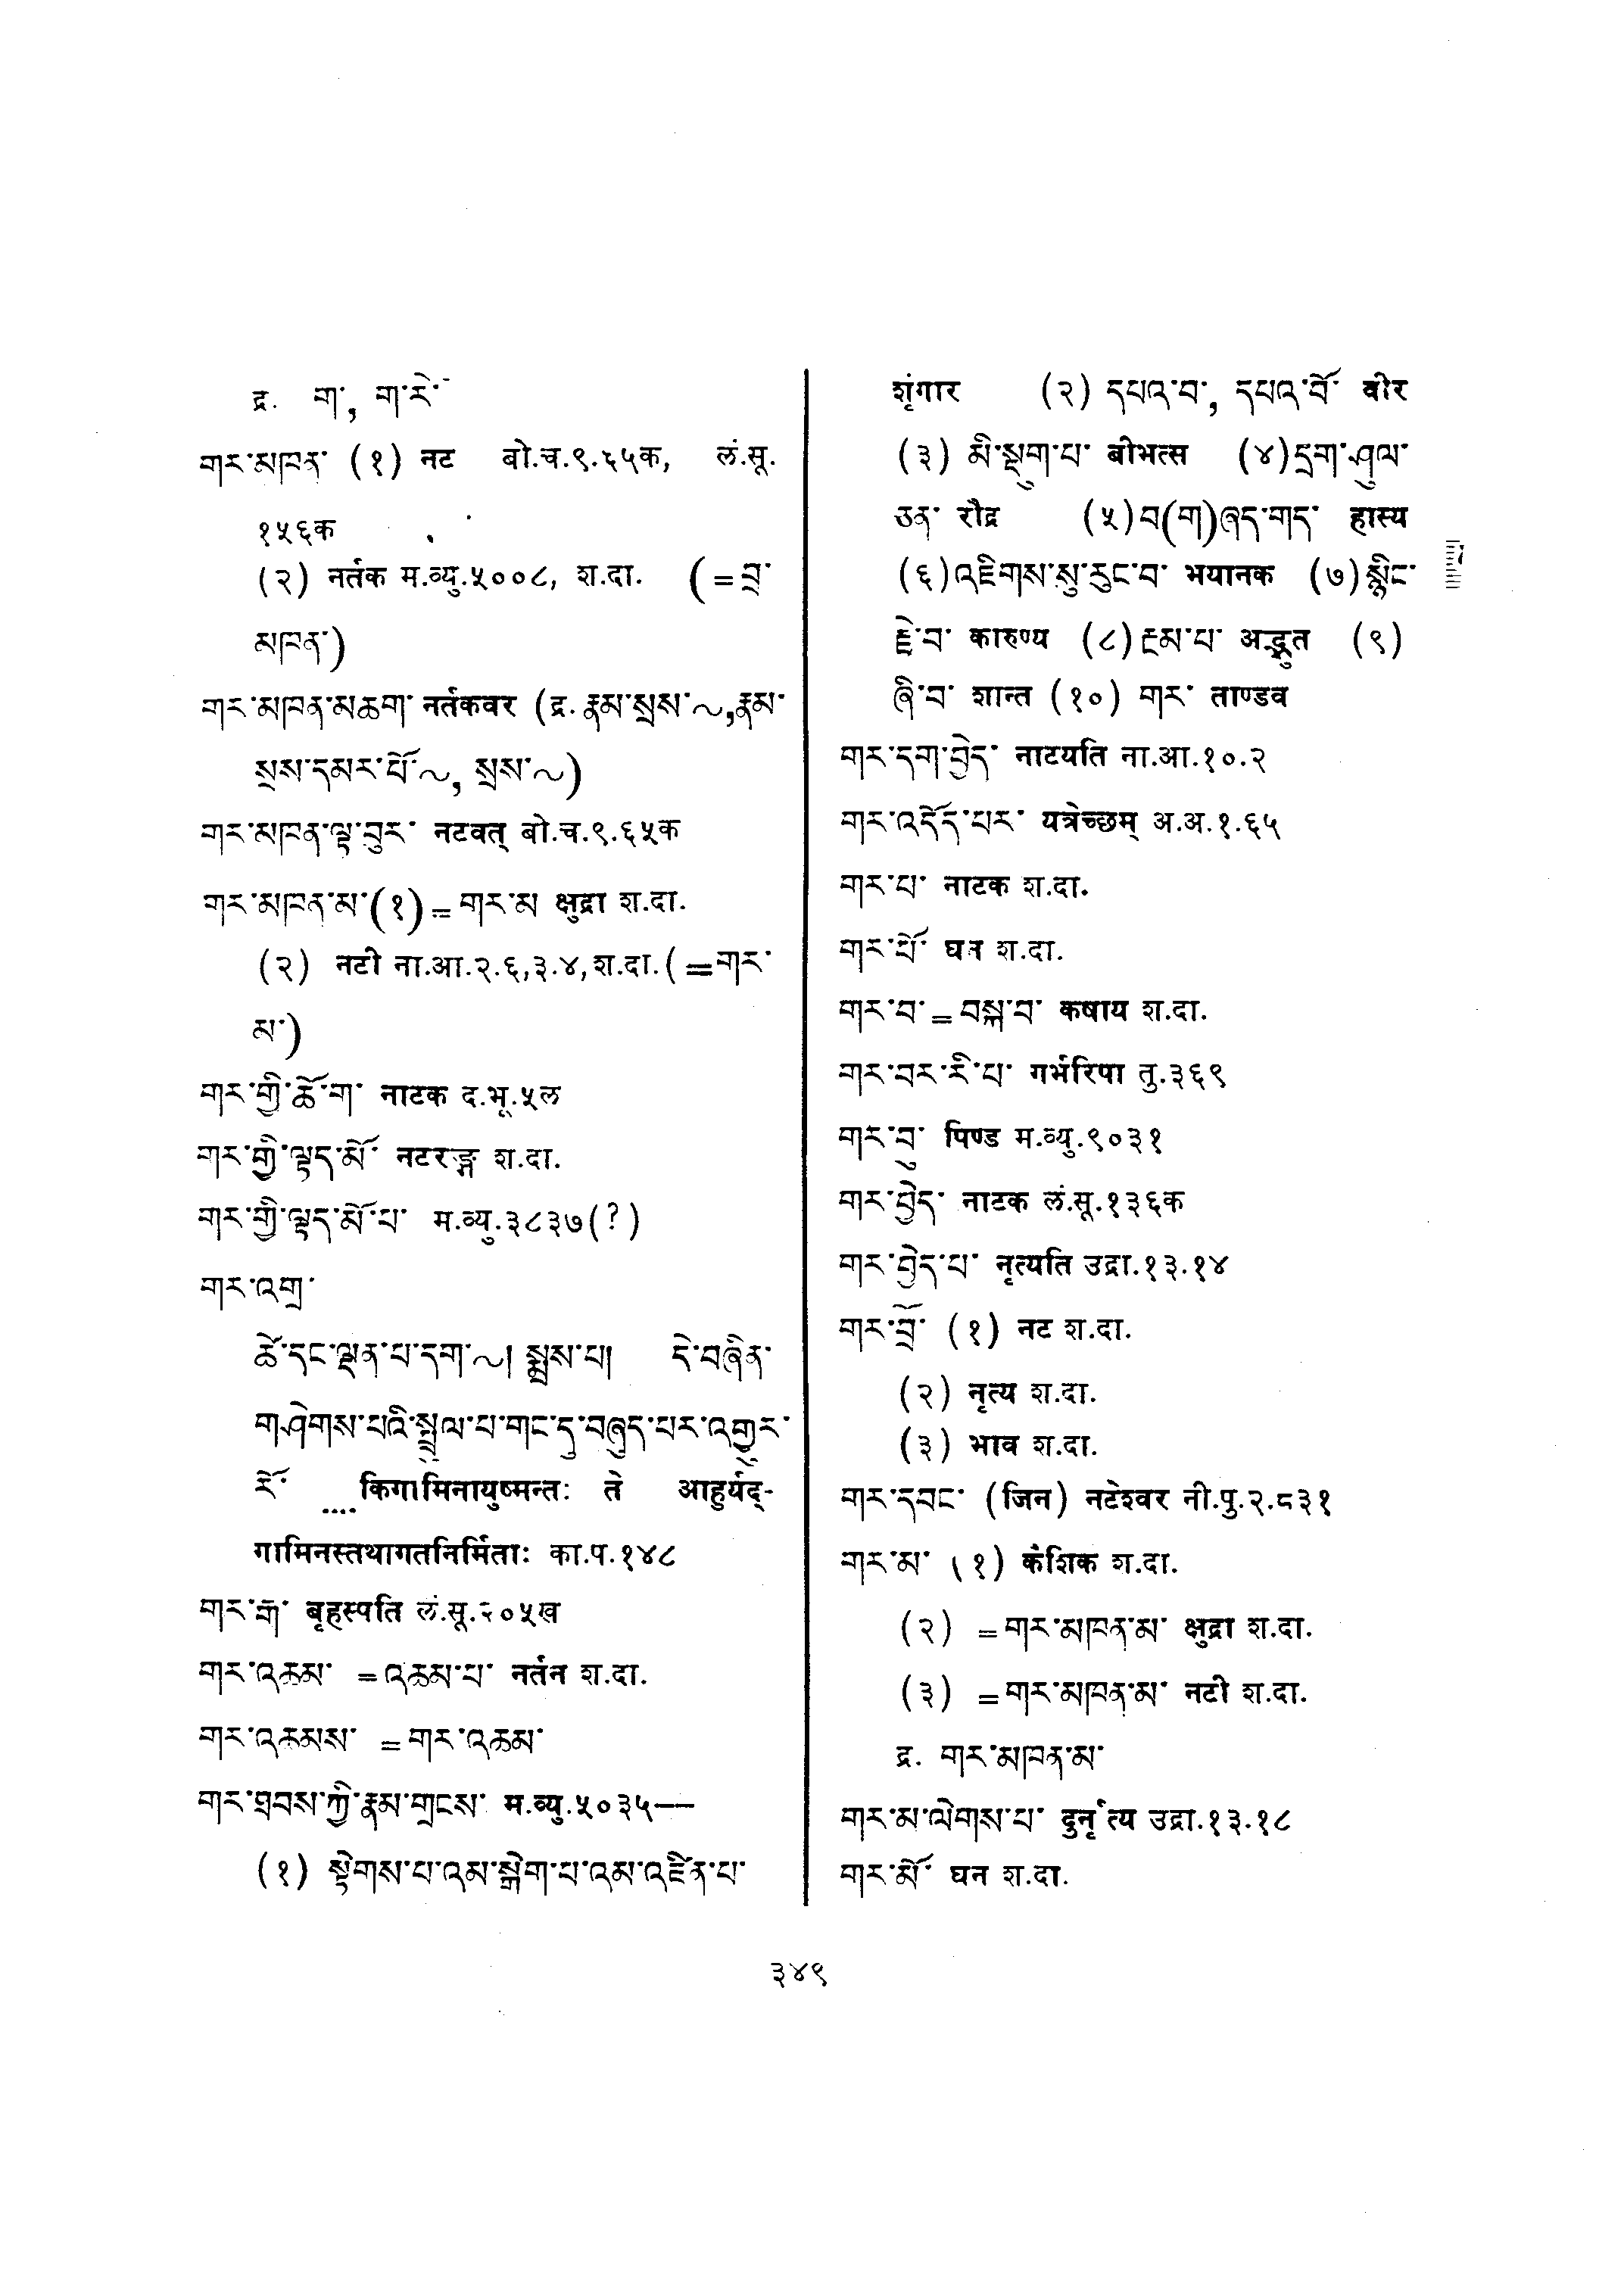 द्र. ག་, ག་རེ་
གར་མཁན་ (१) नट बो.च.९.६५क, लं.सू.
१५६क
(२) नर्तक म.व्यु.५००८, श.दा. (=བྲ་
མཁན་)
གར་མཁན་མཆག་ नर्तकवर (द्र. རྣམ་སྲས་~,རྣམ་
སྲས་དམར་པོ་~, སྲས་~)
གར་མཁན་ལྟ་བུར་ नटवत् बो.च.९.६५क
གར་མཁན་མ་(१)=གར་མ क्षुद्रा श.दा.
(२) नटी ना.आ.२.६,३.४,श.दा.(=གར་
མ་)
གར་གྱི་ཆོ་ག་ नाटक द.भू.५ल
གར་གྱི་ལྟད་མོ་ नटरङ्ग श.दा.
གར་གྱི་ལྟད་མོ་པ་ म.व्यु.३८३७(?)
གར་འགྲ་
ཚེ་དང་ལྡན་པ་དག་~། སྨྲས་པ། དེ་བཞིན་
གཤེགས་པའི་སྤྲུལ་པ་གང་དུ་བཞུད་པར་འགྱུར་
རོ་ ....किंगामिनायुष्मन्तः ते आहुर्यद्-
गामिनस्तथागतनिर्मिताः का.प.१४८
གར་རྒ་ बृहस्पति लं.सू.२०५ख
གར་འཆམ་ =འཆམ་པ་ नर्तन श.दा.
གར་འཆམས་ =གར་འཆམ་
གར་ཐབས་ཀྱི་རྣམ་གྲངས་ म.व्यु.५०३५—
(१) སྟེགས་པ་འམ་སྒེག་པ་འམ་འཛིན་པ་
शृंगार (२) དཔའ་བ་, དཔའ་བོ་ वीर
(३) མི་སྡུག་པ་ बीभत्स (४)དྲག་ཤུལ་
ཅན་ रौद्र (५)བ(ག)ཞད་གད་ हास्य
(६)འཇིགས་སུ་རུང་བ་ भयानक (७)སྙིང་
རྗེ་བ་ कारुण्य (८)རྔམ་པ་ अद्भुत (९)
ཞི་བ་ शान्त (१०) གར་ ताण्डव
གར་དག་བྱེད་ नाटयति ना.आ.१०.२
གར་འདོད་པར་ यत्रेच्छम् अ.अ.१.६५
གར་པ་ नाटक श.दा.
གར་པོ་ घन श.दा.
གར་བ་=བསྐ་བ་ कषाय श.दा.
གར་བར་རི་པ་ गर्भरिपा तु.३६९
གར་བུ་ पिण्ड म.व्यु.९०३१
གར་བྱེད་ नाटक लं.सू.१३६क
གར་བྱེད་པ་ नृत्यति उद्रा.१३.१४
གར་བྲོ་ (१) नट श.दा.
(२) नृत्य श.दा.
(३) भाव श.दा.
གར་དབང་ (जिन) नटेश्वर नी.पु.२.८३१
གར་མ་ (१) कंशिक श.दा.
(२) =གར་མཁན་མ་ क्षुद्रा श.दा.
(३) =གར་མཁན་མ་ नटी श.दा.
द्र. གར་མཁན་མ་
གར་མ་ལེགས་པ་ दुर्नृत्य उद्रा.१३.१८
གར་མོ་ घन श.दा.
३४९